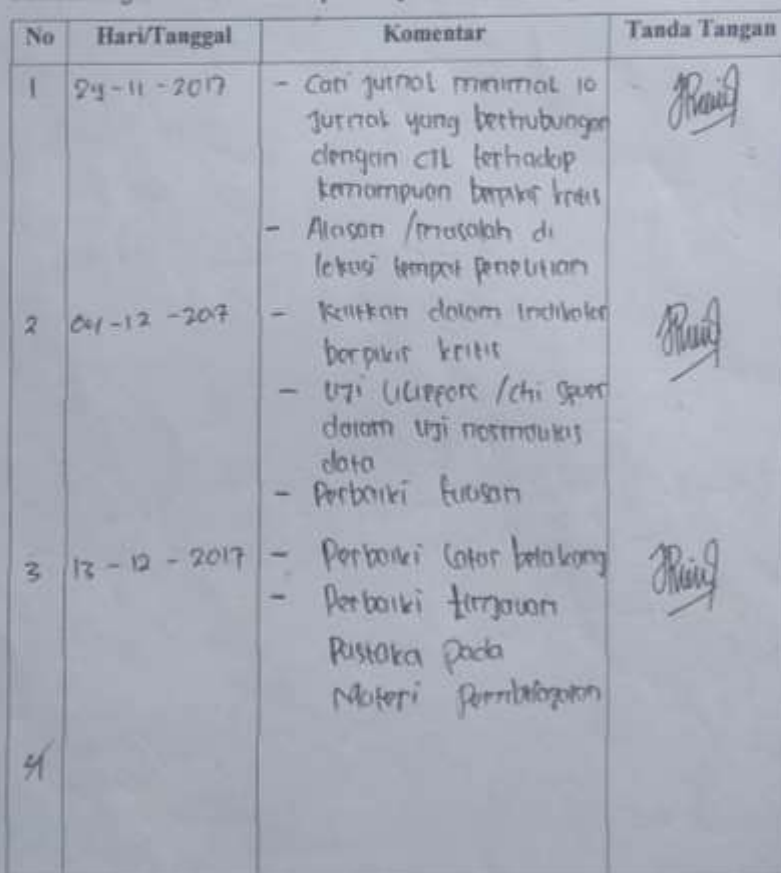 No Hari/Tanggal Komentar Tanda Tangan
1 29-11-2017 - Cari jurnal minimal 10
jurnal yang berhubungan
dengan CTL terhadap
kemampuan berpikir kritis
- Alasan /masalah di
lokasi tempat penelitian
2 04-12-2017 - Kaitkan dalam indikator
berpikir kritis
- Uji Liliefors /chi squer
dalam uji normalitas
data
- Perbaiki tulisan
3 13-12-2017 - Perbaiki latar belakang
- Perbaiki tinjauan
Pustaka pada
Materi Pembelajaran
4